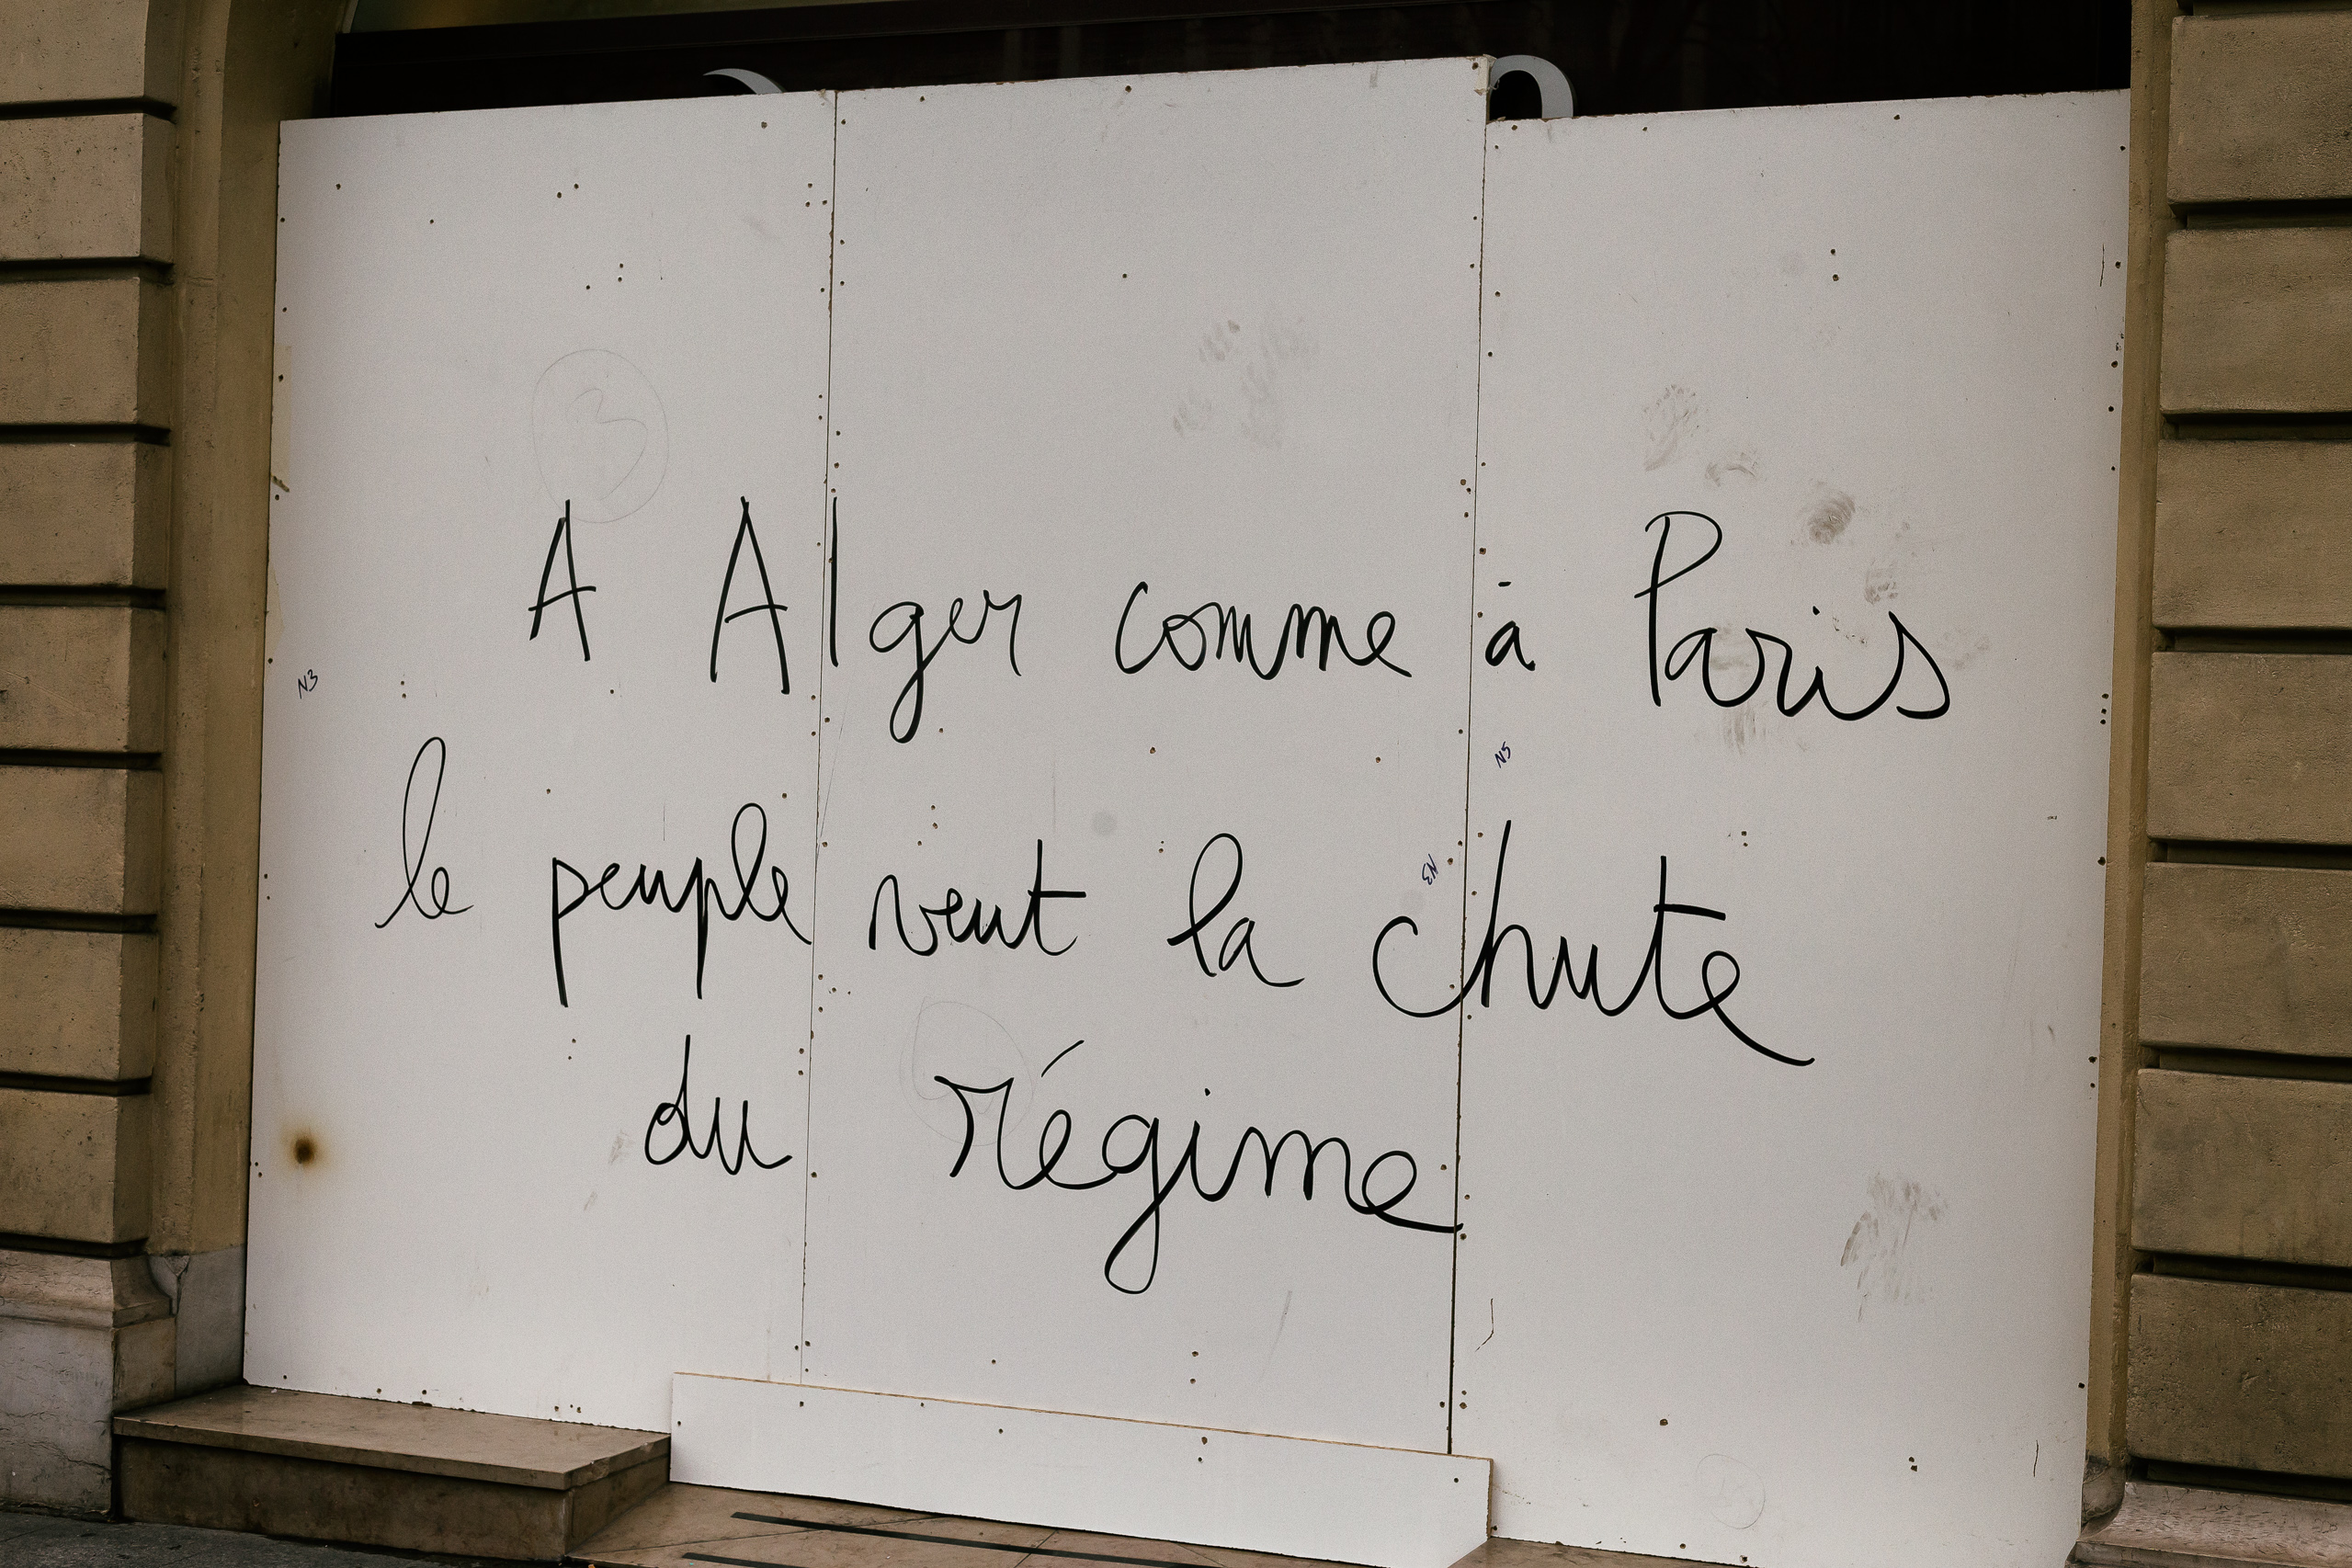 A Alger comme à Paris
le peuple veut la chute
du régime
3
N3
N5
N3